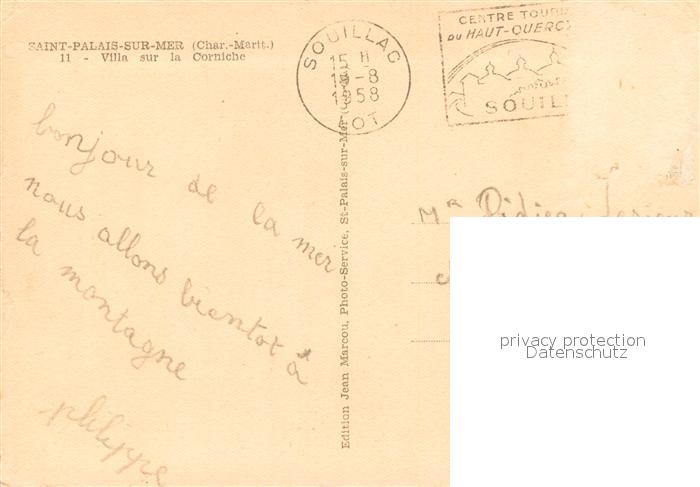 SAINT-PALAIS-SUR-MER (Char.-Marit.)
11 - Villa sur la Corniche
SOUILLAC
15 H
-8
1958
LOT
CENTRE TOURI
DU HAUT-QUERCY
SOUIL
bonjour de la mer
nous allons bientot à
la montagne
philippe
Edition Jean Marcou, Photo-Service, St-Palais-sur-Mer
Mr Didier
privacy protection
Datenschutz